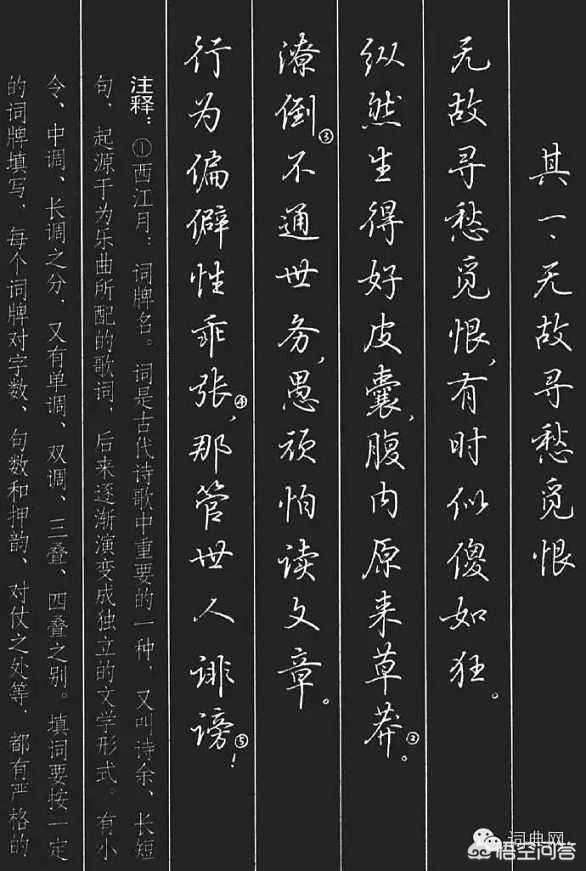 其一、无故寻愁觅恨
无故寻愁觅恨，有时似傻如狂。
纵然生得好皮囊，腹内原来草莽②。
潦倒③不通世务，愚顽怕读文章。
行为偏僻性乖张④，那管世人诽谤⑤！
注释：①西江月：词牌名。词是古代诗歌中重要的一种，又叫诗余、长短
句，起源于为乐曲所配的歌词，后来逐渐演变成独立的文学形式。有小
令、中调、长调之分，又有单调、双调、三叠、四叠之别。填词要按一定
的词牌填写，每个词牌对字数、句数和押韵、对仗之处等，都有严格的
词典网
悟空问答